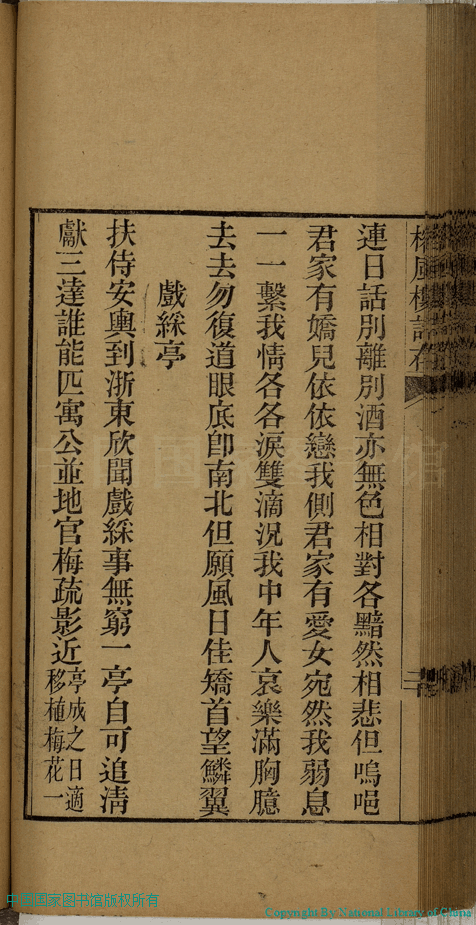 連日話別離別酒亦無色相對各黯然相悲但嗚咽
君家有嬌兒依依戀我側君家有愛女宛然我弱息
一一繫我情各各淚雙滴況我中年人哀樂滿胸臆
去去勿復道眼底卽南北但願風日佳矯首望鱗翼
戲綵亭
扶侍安輿到浙東欣聞戲綵事無窮一亭自可追淸
獻三達誰能匹寓公並地官梅疏影近亭成之日適
移植梅花一
中国国家图书馆版权所有
Copyright By National Library of China